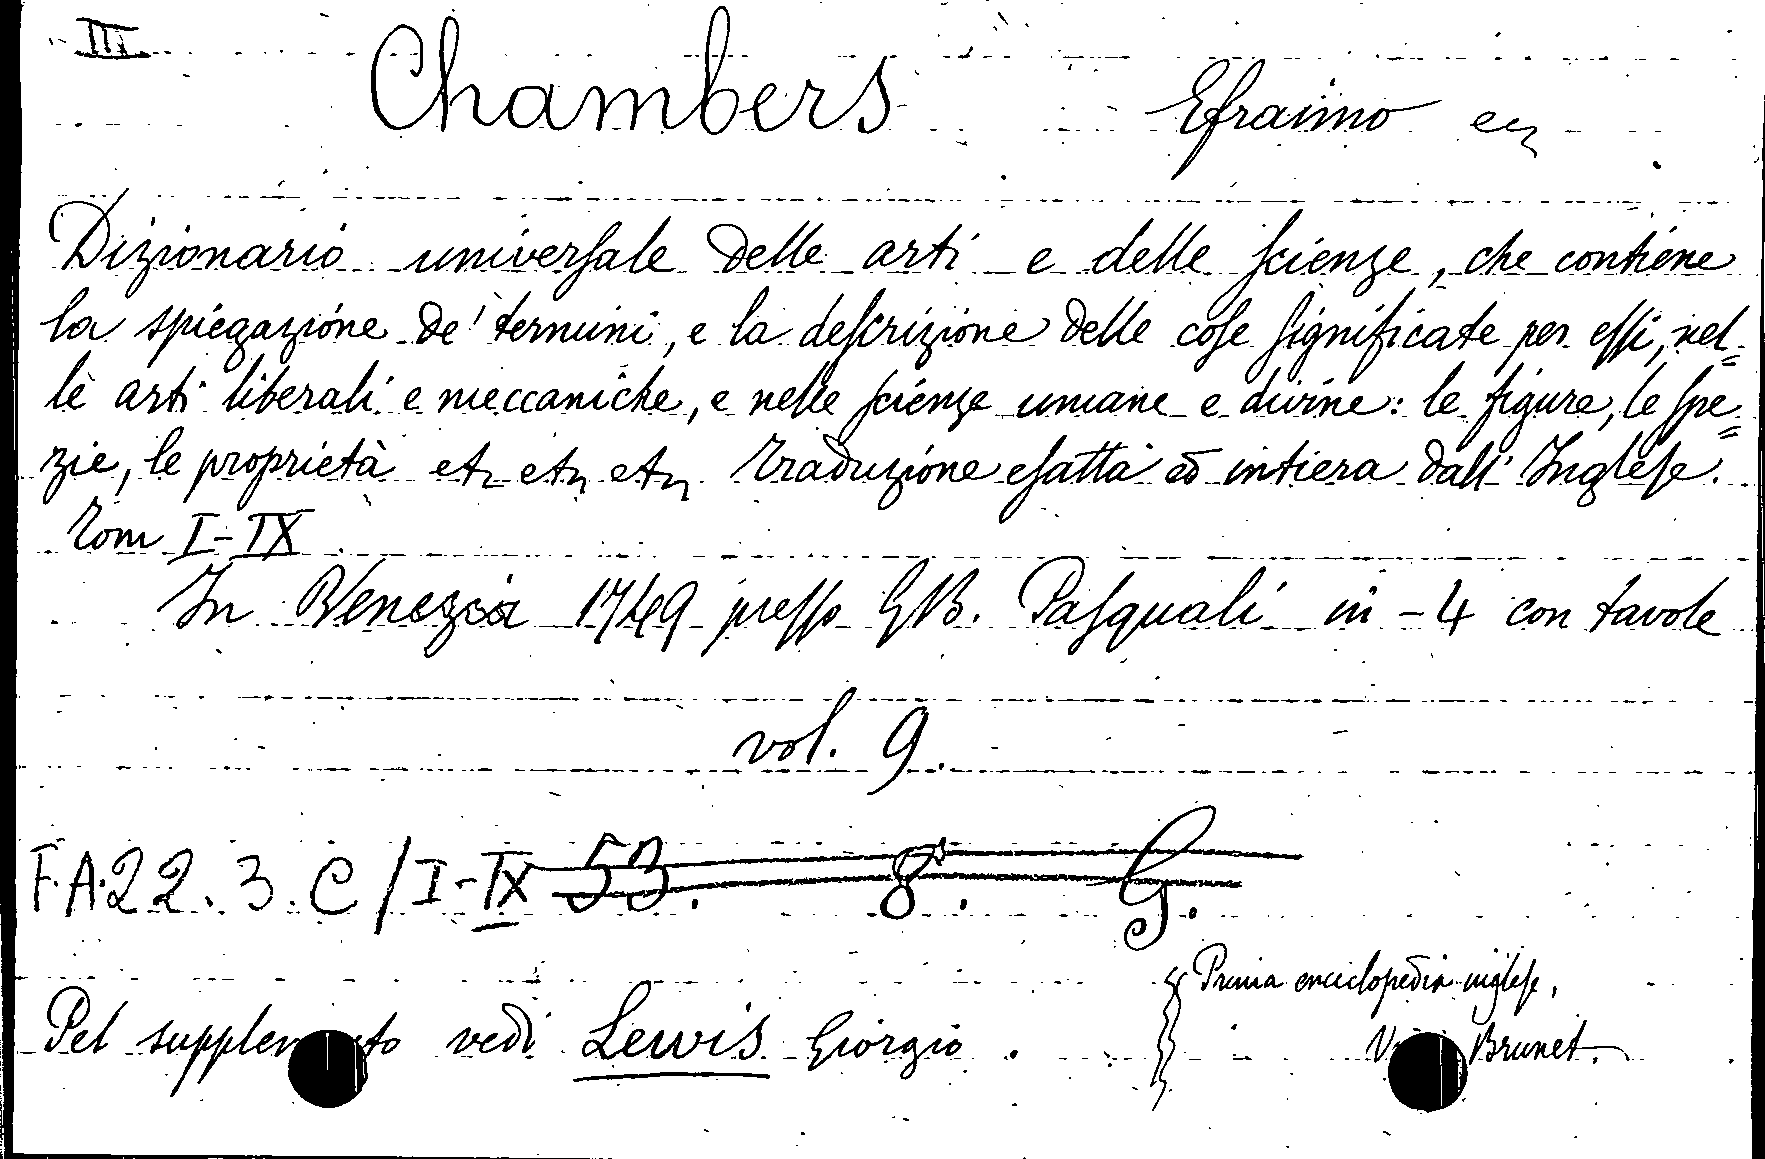 III
Chambers Efraimo
Dizionario universale delle arti e delle scienze, che contiene
la spiegazione de' termini, e la descrizione delle cose significate per essi, nel=
le arti liberali e meccaniche, e nelle scienze umane e divine: le figure, le spe=
zie, le proprietà etc etc etc Traduzione esatta ed intiera dall'Inglese.
Tom I-IX
In Venezia 1749 presso G.B. Pasquali in-4 con tavole
vol. 9.
F.A.22.3.C/I-IX 53. 8. G.
Prima enciclopedia inglese,
Pel supplemento vedi Lewis Giorgio.
Brunet.